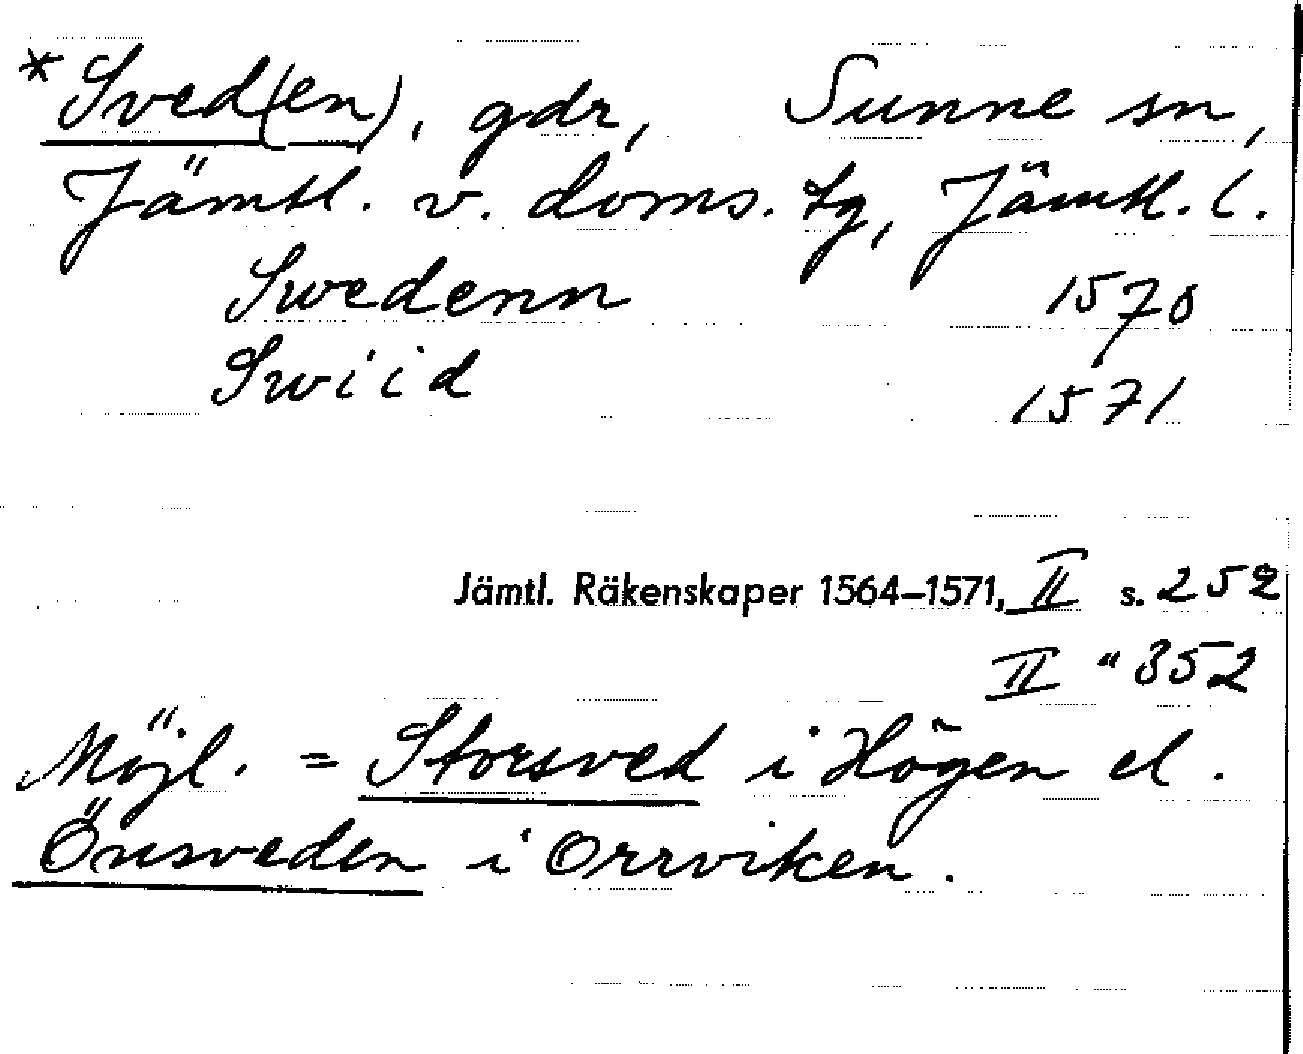 *Sved(en), gdr, Sunne sn,
Jämtl. v. doms. tg, Jämtl. l.
Swedenn 1570
Swiid 1571
Jämtl. Räkenskaper 1564–1571, II s. 252
II " 352
Möjl. = Storsved i Högen el.
Önsveden i Orrviken.